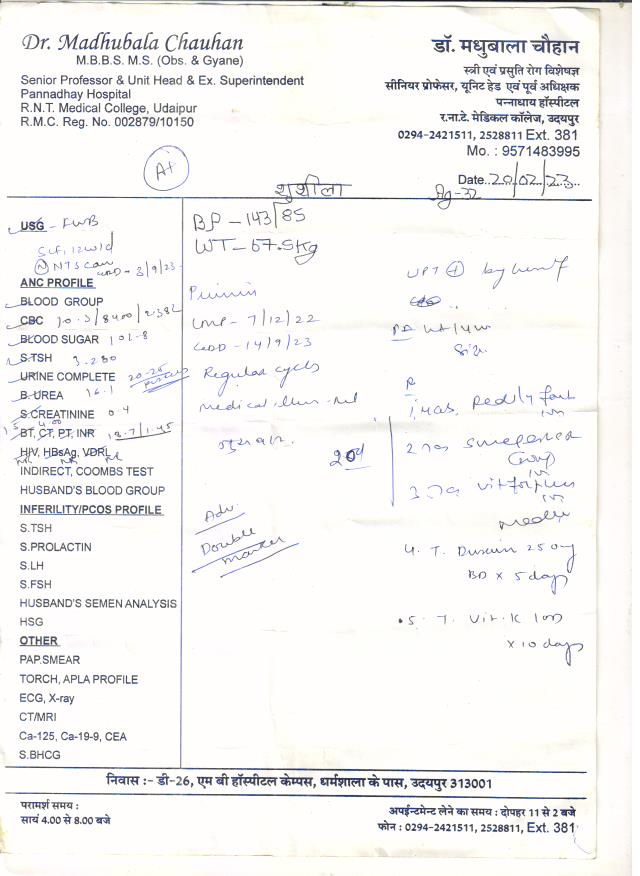 Dr. Madhubala Chauhan
M.B.B.S. M.S. (Obs. & Gyane)
Senior Professor & Unit Head & Ex. Superintendent
Pannadhay Hospital
R.N.T. Medical College, Udaipur
R.M.C. Reg. No. 002879/10150
डॉ. मधुबाला चौहान
स्त्री एवं प्रसुति रोग विशेषज्ञ
सीनियर प्रोफेसर, यूनिट हेड एवं पूर्व अधिक्षक
पन्नाधाय हॉस्पीटल
र.ना.टे. मेडिकल कॉलेज, उदयपुर
0294-2421511, 2528811 Ext. 381
Mo. : 9571483995
Date..20/02/23...
A+
सुशीला
Ag-32
USG - FWB
SLF, 12w1d
NT Scan
EDD - 3/9/23
ANC PROFILE
BLOOD GROUP
CBC 10.3/8400/2.38L
BLOOD SUGAR 101.8
S.TSH 3.280
URINE COMPLETE 20-25
B. UREA 16.1
S.CREATININE 0.4
BT, CT, PT, INR 13.7/1.45
HIV, HBsAg, VDRL
INDIRECT, COOMBS TEST
HUSBAND'S BLOOD GROUP
INFERILITY/PCOS PROFILE
S.TSH
S.PROLACTIN
S.LH
S.FSH
HUSBAND'S SEMEN ANALYSIS
HSG
OTHER
PAP.SMEAR
TORCH, APLA PROFILE
ECG, X-ray
CT/MRI
Ca-125, Ca-19-9, CEA
S.BHCG
BP - 143/85
WT - 57.5kg
LMP - 7/12/22
EDD - 14/9/23
Regular cycles
medical illness - nil
Adv.
Double
marker
UPT +
PA
20d
4. T. 250mg
BD x 5 days
5. T. Vit. K
x 10 days
निवास :- डी-26, एम बी हॉस्पीटल केम्पस, धर्मशाला के पास, उदयपुर 313001
परामर्श समय :
सायं 4.00 से 8.00 बजे
अपॉइन्टमेन्ट लेने का समय : दोपहर 11 से 2 बजे
फोन : 0294-2421511, 2528811, Ext. 381